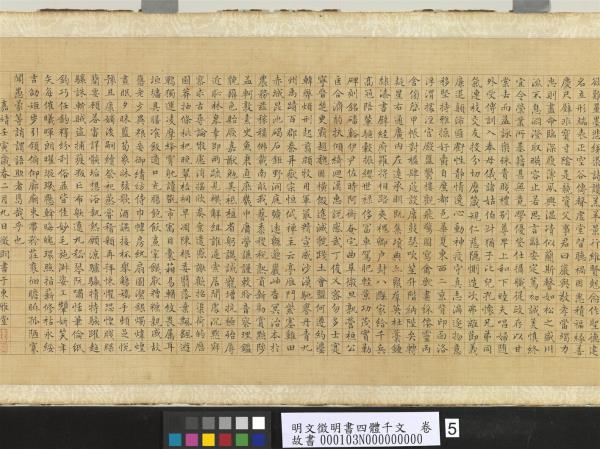 欲難量墨悲絲染詩讚羔羊景行維賢剋念作聖德建
名立形端表正空谷傳聲虛堂習聽禍因惡積福緣善
慶尺璧非寶寸陰是競資父事君曰嚴與敬孝當竭力
忠則盡命臨深履薄夙興溫凊似蘭斯馨如松之盛川
流不息淵澄取映容止若思言辭安定篤初誠美慎終
宜令榮業所基籍甚無竟學優登仕攝職從政存以甘
棠去而益詠樂殊貴賤禮別尊卑上和下睦夫唱婦隨
外受傅訓入奉母儀諸姑伯叔猶子比兒孔懷兄弟同
氣連枝交友投分切磨箴規仁慈隱惻造次弗離節義
廉退顛沛匪虧性靜情逸心動神疲守真志滿逐物意
移堅持雅操好爵自縻都邑華夏東西二京背邙面洛
浮渭據涇宮殿盤鬱樓觀飛驚圖寫禽獸畫彩仙靈丙
舍傍啟甲帳對楹肆筵設席鼓瑟吹笙升階納陛弁轉
疑星右通廣內左達承明既集墳典亦聚群英杜稾鍾
隸漆書壁經府羅將相路俠槐卿戶封八縣家給千兵
高冠陪輦驅轂振纓世祿侈富車駕肥輕策功茂實勒
碑刻銘磻溪伊尹佐時阿衡奄宅曲阜微旦孰營桓公
匡合濟弱扶傾綺迴漢惠說感武丁俊乂密勿多士寔
寧晉楚更霸趙魏困橫假途滅虢踐土會盟何遵約法
韓弊煩刑起翦頗牧用軍最精宣威沙漠馳譽丹青九
州禹跡百郡秦并嶽宗恒岱禪主云亭雁門紫塞雞田
赤城昆池碣石鉅野洞庭曠遠緜邈巖岫杳冥治本於
農務茲稼穡俶載南畝我藝黍稷稅熟貢新勸賞黜陟
孟軻敦素史魚秉直庶幾中庸勞謙謹敕聆音察理鑑
貌辨色貽厥嘉猷勉其祗植省躬譏誡寵增抗極殆辱
近恥林皋幸即兩疏見機解組誰逼索居閒處沉默寂
寥求古尋論散慮逍遙欣奏累遣慼謝歡招渠荷的歷
園莽抽條枇杷晚翠梧桐早凋陳根委翳落葉飄颻遊
鵾獨運凌摩絳霄耽讀翫市寓目囊箱易輶攸畏屬耳
垣牆具膳餐飯適口充腸飽飫烹宰飢厭糟糠親戚故
舊老少異糧妾御績紡侍巾帷房紈扇圓潔銀燭煒煌
晝眠夕寐藍筍象床弦歌酒讌接杯舉觴矯手頓足悅
豫且康嫡後嗣續祭祀烝嘗稽顙再拜悚懼恐惶牋牒
簡要顧答審詳骸垢想浴執熱願涼驢騾犢特駭躍超
驤誅斬賊盜捕獲叛亡布射遼丸嵇琴阮嘯恬筆倫紙
鈞巧任釣釋紛利俗並皆佳妙毛施淑姿工顰妍笑年
矢每催曦暉朗曜璇璣懸斡晦魄環照指薪修祜永綏
吉劭矩步引領俯仰廊廟束帶矜莊徘徊瞻眺孤陋寡
聞愚蒙等誚謂語助者焉哉乎也
嘉靖壬寅歲春二月九日徵明書于東雅堂
明文徵明書四體千文 卷
故書000103N000000000
5